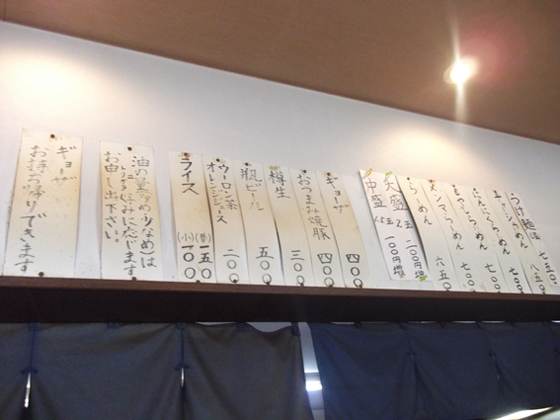 つけ麺
七五〇
八五〇
らーめん
七〇〇
らーめん
七〇〇
メンマらーめん
七〇〇
らーめん
六五〇
大盛 2玉 二〇〇円増
中盛 1.5玉 一〇〇円増
ギョーザ 四〇〇
おつまみ焼豚 四〇〇
樽生 三〇〇
瓶ビール 五〇〇
ウーロン茶
オレンジジュース 二〇〇
ライス (普)一五〇
(小)一〇〇
油の量(多め・少なめ)は
お好みに応じます
お申し出下さい。
ギョーザ
お持ち帰りできます